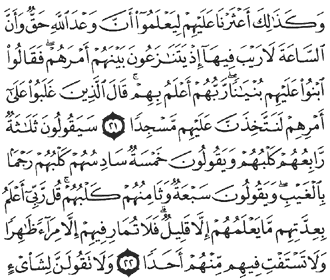 وَكَذَٰلِكَ أَعْثَرْنَا عَلَيْهِمْ لِيَعْلَمُوٓا۟ أَنَّ وَعْدَ ٱللَّهِ حَقٌّ وَأَنَّ
ٱلسَّاعَةَ لَا رَيْبَ فِيهَآ إِذْ يَتَنَٰزَعُونَ بَيْنَهُمْ أَمْرَهُمْ ۖ فَقَالُوا۟
ٱبْنُوا۟ عَلَيْهِم بُنْيَٰنًا ۖ رَّبُّهُمْ أَعْلَمُ بِهِمْ ۚ قَالَ ٱلَّذِينَ غَلَبُوا۟ عَلَىٰٓ
أَمْرِهِمْ لَنَتَّخِذَنَّ عَلَيْهِم مَّسْجِدًا ٢١ سَيَقُولُونَ ثَلَٰثَةٌ
رَّابِعُهُمْ كَلْبُهُمْ وَيَقُولُونَ خَمْسَةٌ سَادِسُهُمْ كَلْبُهُمْ رَجْمًۢا
بِٱلْغَيْبِ ۖ وَيَقُولُونَ سَبْعَةٌ وَثَامِنُهُمْ كَلْبُهُمْ ۚ قُل رَّبِّىٓ أَعْلَمُ
بِعِدَّتِهِم مَّا يَعْلَمُهُمْ إِلَّا قَلِيلٌ ۗ فَلَا تُمَارِ فِيهِمْ إِلَّا مِرَآءً ظَٰهِرًا
وَلَا تَسْتَفْتِ فِيهِم مِّنْهُمْ أَحَدًا ٢٢ وَلَا تَقُولَنَّ لِشَا۟ىْءٍ